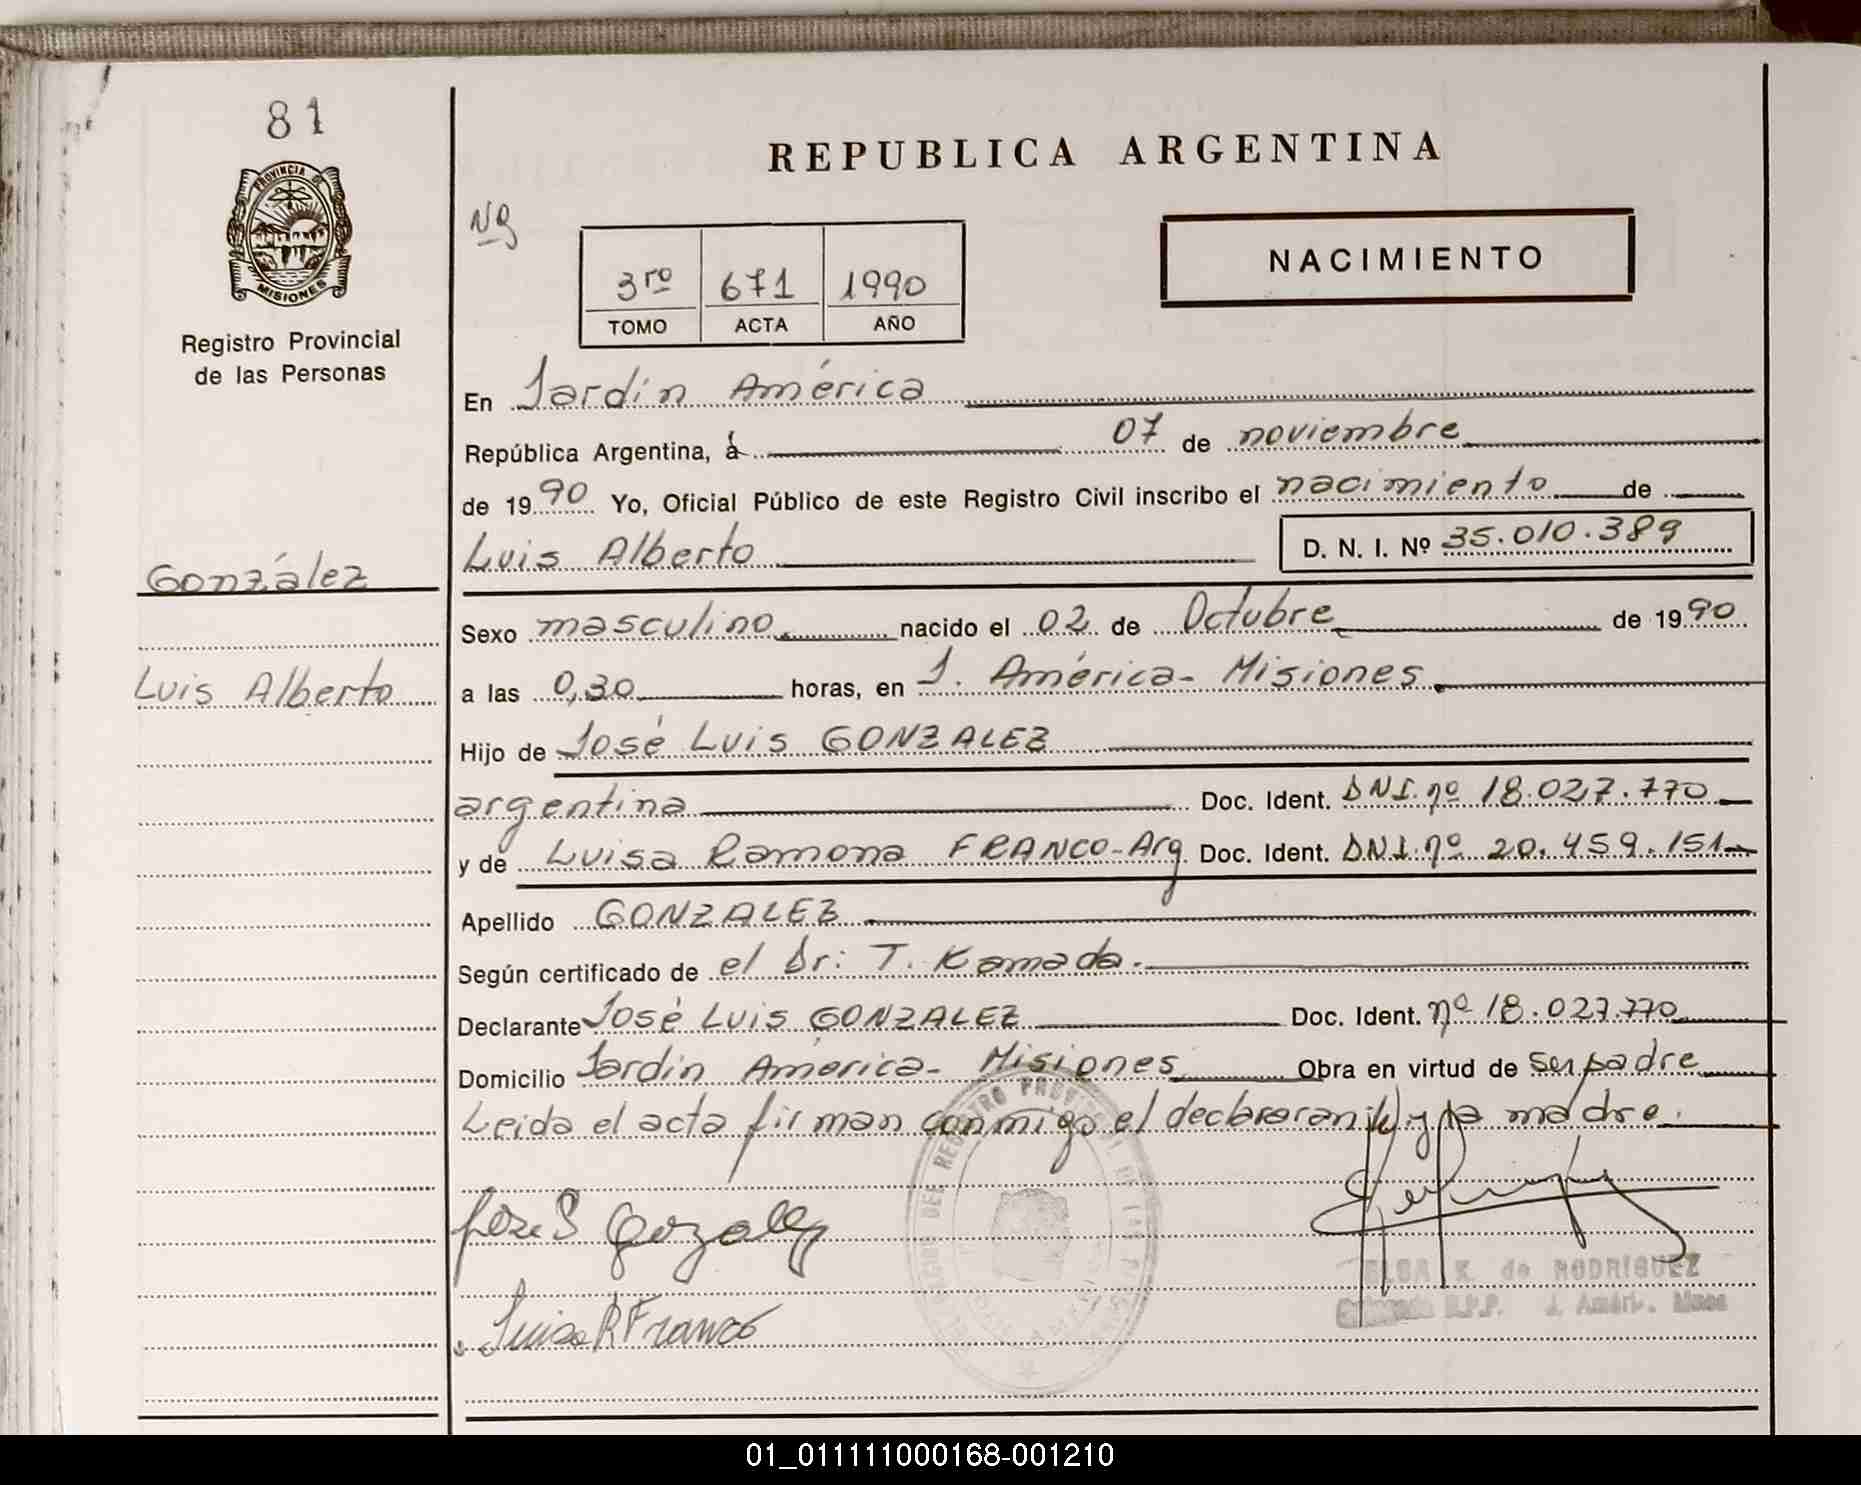 81
PROVINCIA DE
MISIONES
Registro Provincial
de las Personas
González
Luis Alberto
REPUBLICA ARGENTINA
3ro 671 1990
TOMO ACTA AÑO
NACIMIENTO
En Jardín América
República Argentina, á 07 de noviembre
de 1990 Yo, Oficial Público de este Registro Civil inscribo el nacimiento de
Luis Alberto D. N. I. Nº 35.010.389
Sexo masculino nacido el 02 de Octubre de 1990
a las 0,30 horas, en J. América - Misiones.
Hijo de José Luis GONZALEZ
argentina Doc. Ident. DNI. nº 18.027.770
y de Luisa Ramona FRANCO - Arg Doc. Ident. DNI. nº 20.459.151
Apellido GONZALEZ
Según certificado de el Dr: T. Kamada.
Declarante José Luis GONZALEZ Doc. Ident. nº 18.027.770
Domicilio Jardín América - Misiones Obra en virtud de ser padre
Leida el acta firman conmigo el y la madre.
Jose Gozalez
Luisa R Franco
K. de RODRIGUEZ
01_011111000168-001210